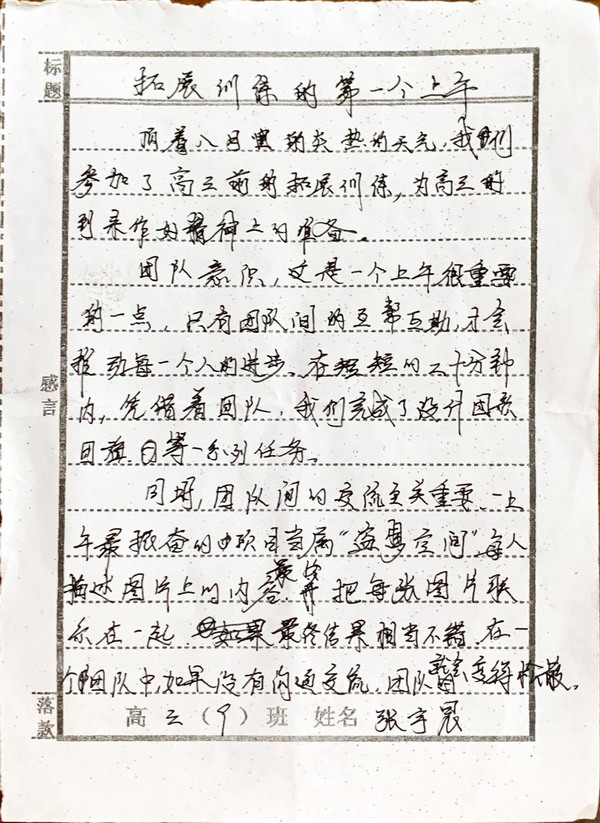 标题
拓展训练的第一个上午
顶着八月里的炎热的天气,我们
参加了高三前的拓展训练,为高三的
到来作好精神上的准备。
团队意识,这是一个上午很重要
的一点,只有团队间的互帮互助,才会
推动每一个人的进步。在短短的二十分钟
内,凭借着团队,我们完成了设计团歌
团旗 等一系列任务。
感言
同时,团队间的交流至关重要,一上
午最振奋的项目当属“盗梦空间”,每人
描述图片上的内容,最后 把每张图片联
系在一起 最终结果相当不错,在一
个团队中,如果没有沟通交流,团队就会变得松散。
落款
高三(9)班 姓名 张宇晨